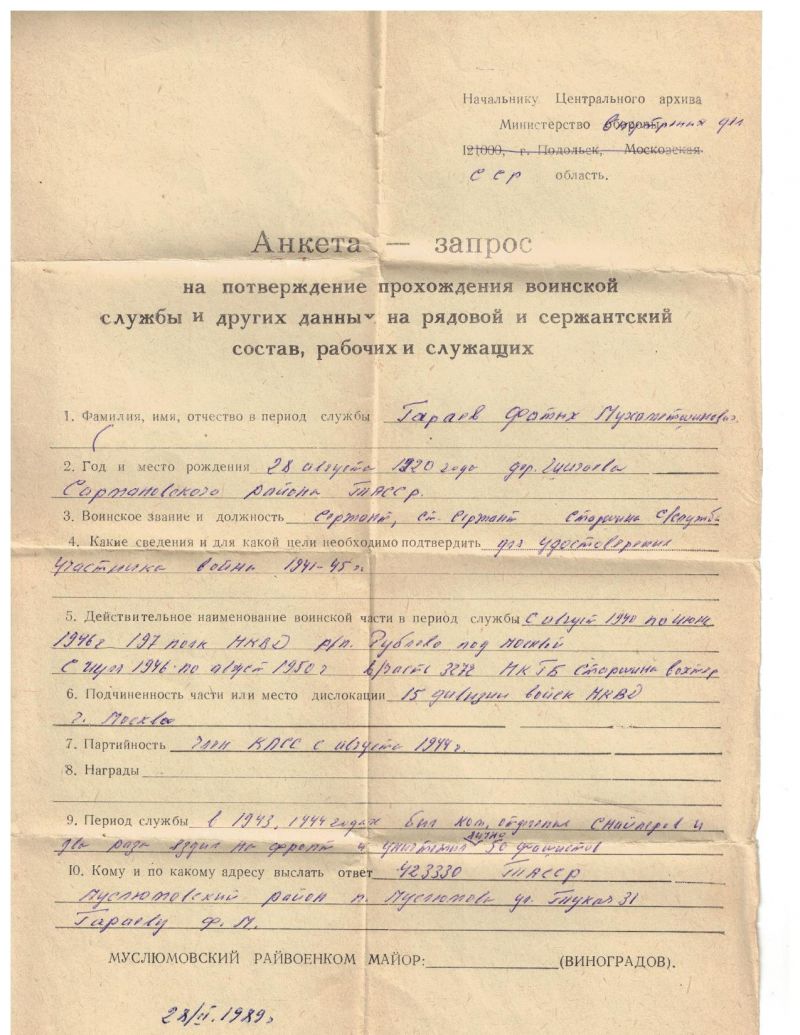 Начальнику Центрального архива
Министерство обороны внутренних дел
121000, г. Подольск, Московская
ССР область.
Анкета — запрос
на потверждение прохождения воинской
службы и других данных на рядовой и сержантский
состав, рабочих и служащих
1. Фамилия, имя, отчество в период службы Гараев Фатых Мухаметшинович
2. Год и место рождения 28 августа 1920 года дер.
Сармановского района ТАССР.
3. Воинское звание и должность Сержант, ст. Сержант Старшина с/службы
4. Какие сведения и для какой цели необходимо подтвердить для удостоверения
участника войны 1941-45 г.
5. Действительное наименование воинской части в период службы с август 1940 по июнь
1946 г 197 полк НКВД р/п. Рублево под Москвой
С июля 1946 по август 1950 г в/часть 3272 МКТБ Старшина вахтер
6. Подчиненность части или место дислокации 15 дивизии войск НКВД
г. Москва
7. Партийность Член КПСС с августа 1944 г.
8. Награды
9. Период службы в 1943, 1944 годах был ком. отделения снайперов и
два раза ездил на фронт и уничтожил лично 50 фашистов
10. Кому и по какому адресу выслать ответ 423330 ТАССР
Муслюмовский район п. Муслюмово ул. Тукая 31
Гараеву Ф. М.
МУСЛЮМОВСКИЙ РАЙВОЕНКОМ МАЙОР: (ВИНОГРАДОВ).
28/II.1989г